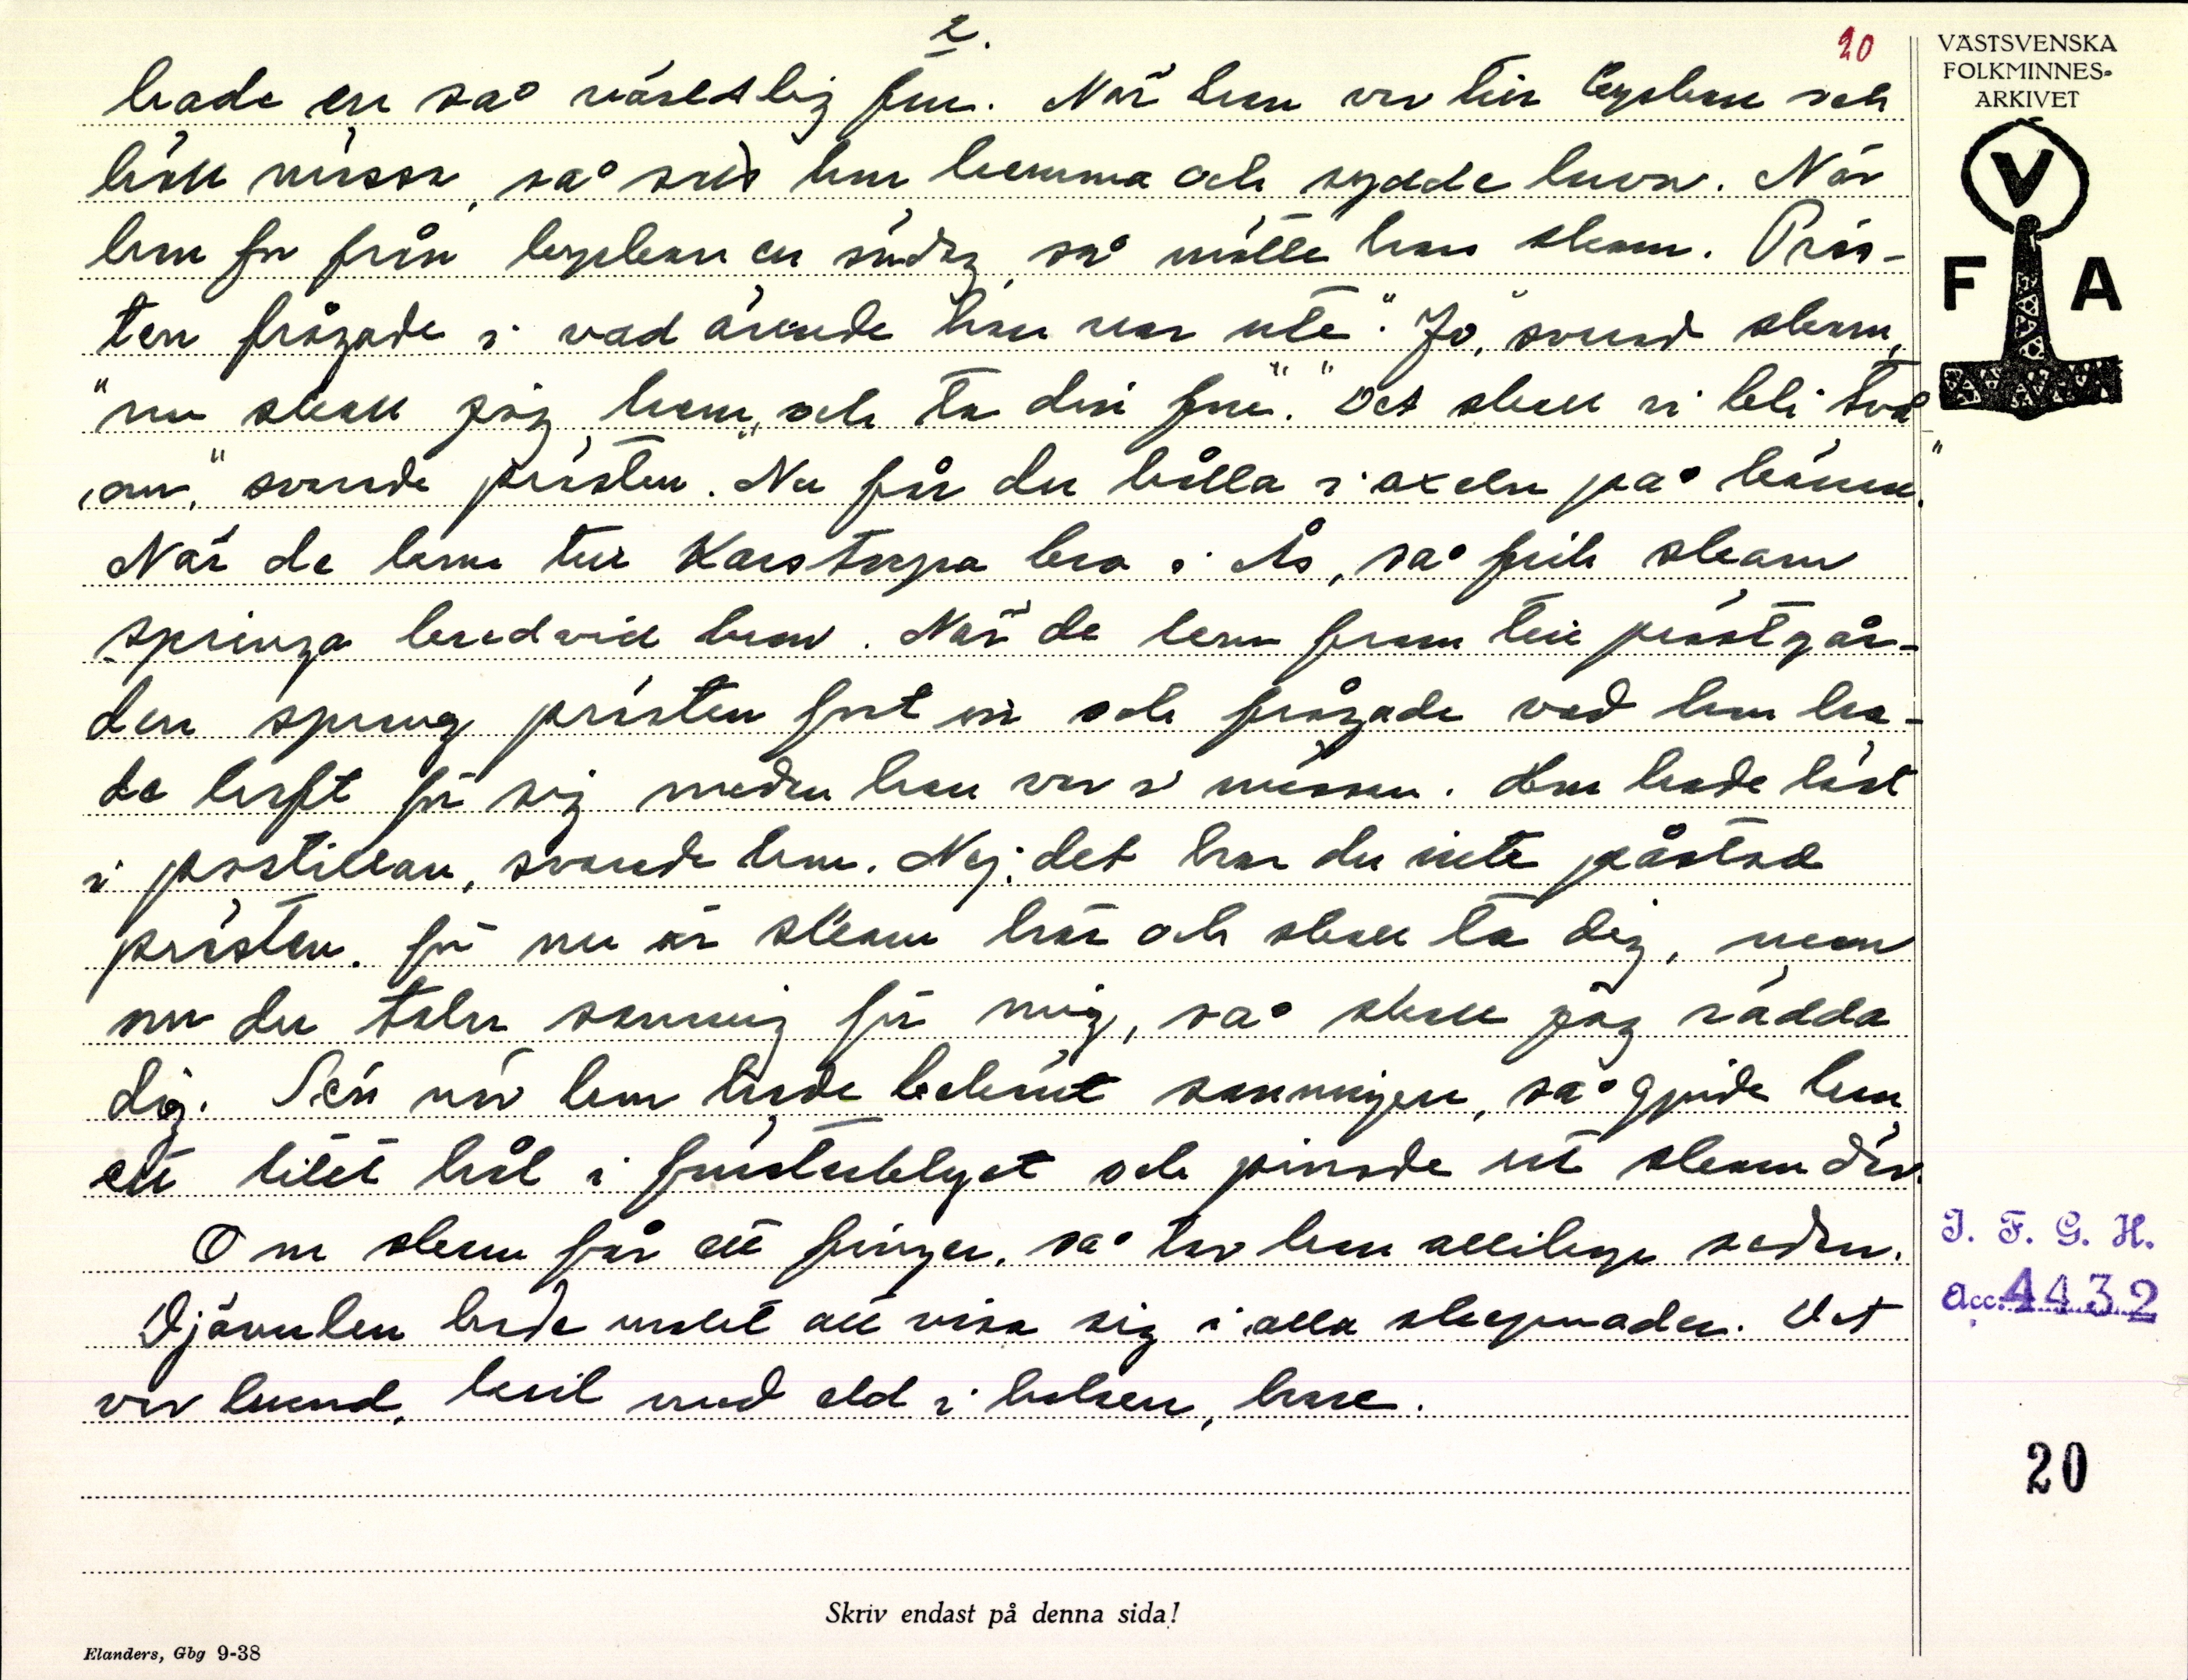 2.
20
hade en så världslig fru. När han var till kyrkan och
höll mässa, så satt hon hemma och sydde huvor. När
han for från kyrkan en söndag, så mötte han skam. Präs-
ten frågade i vad ärende han var ute. "Jo," svarade skam,
"nu skall jag hem och ta din fru." "Det skall vi bli två
om," svarade prästen. "Nu får du hålla i axeln på kärran."
När de kom till Karstorpa bro i Ås, så fick skam
springa bredvid ham. När de kom fram till prästgår-
den sprang prästen fort in och frågade vad hon ha-
de haft för sig medan han var i mässan. Hon hade läst
i postillan, svarade hon. Nej, det har du inte påstod
prästen. för nu är skam här och skall ta dig, men
om du talar sanning för mig, så skall jag rädda
dig. Sen när hon hade bekänt sanningen, så gjorde han
ett litet hål i fönsterblyet och pinade ut skam där.
Om skam får ett finger, så tar han allihop sedan.
Djävulen hade makt att visa sig i alla skepnader. Det
var hund, kasil med eld i halsen, hare.
Skriv endast på denna sida!
Elanders, Gbg 9-38
VÄSTSVENSKA
FOLKMINNES-
ARKIVET
V
F A
I. F. G. H.
Acc. 4432
20